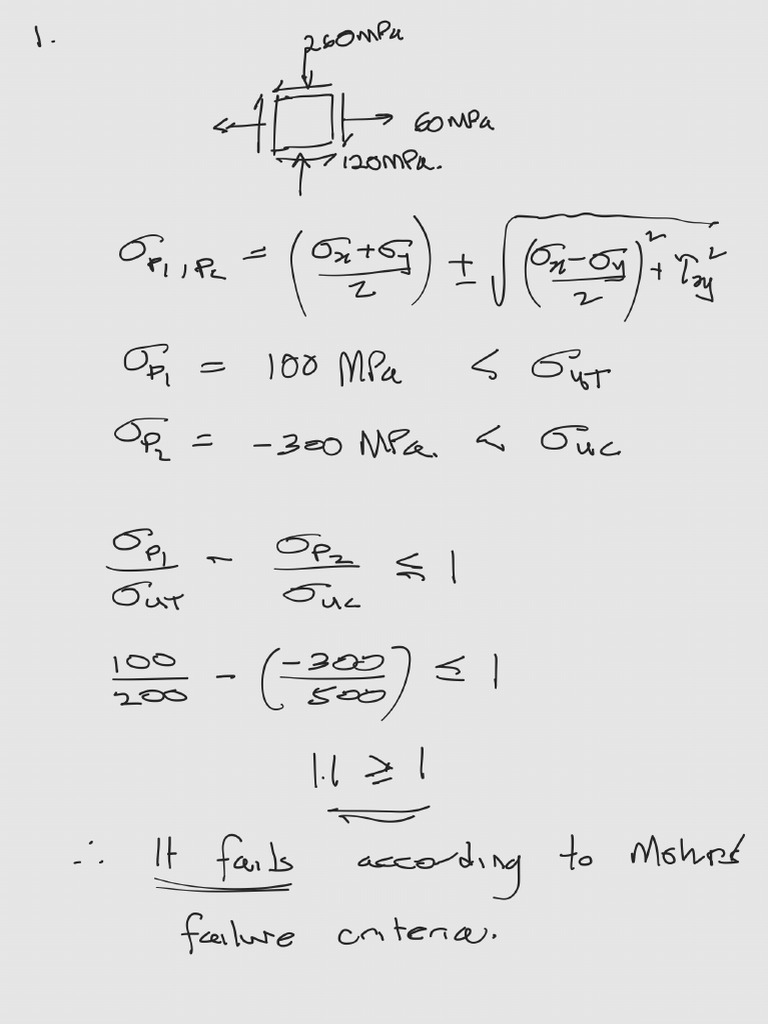 1.
260MPa
60MPa
120MPa.
σP1,P2 = (σx+σy / 2) ± √((σx-σy / 2)² + τxy²)
σP1 = 100 MPa < σUT
σP2 = -300 MPa. < σUC
σP1/σUT - σP2/σUC ≤ 1
100/200 - (-300/500) ≤ 1
1.1 ≥ 1
∴ It fails according to Mohrs
failure criteria.